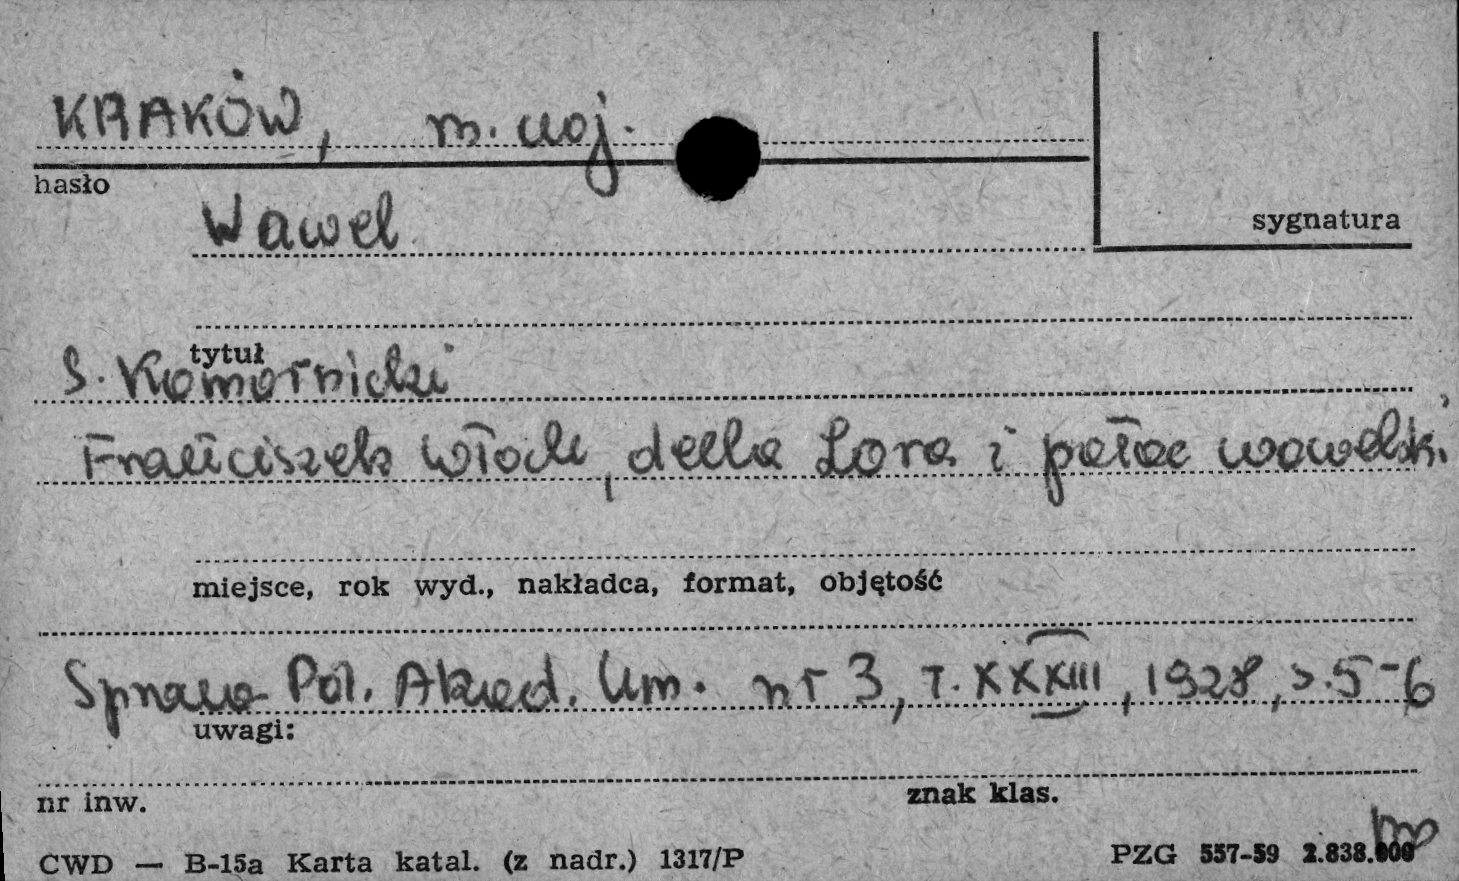 KRAKÓW, m. woj.
hasło
Wawel
sygnatura
tytuł
S. Komornicki
Franciszek Włoch, della Lora i pałac wawelski
miejsce, rok wyd., nakładca, format, objętość
Spraw. Pol. Akad. Um. nr 3, T. XXXIII, 1928, s. 5-6
uwagi:
nr inw.
znak klas.
CWD — B-15a Karta katal. (z nadr.) 1317/P
PZG 557-59 2.838.000